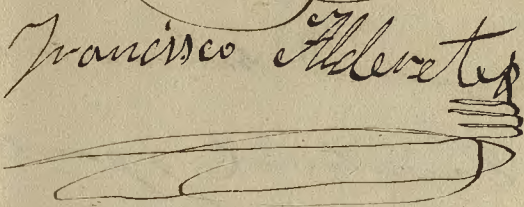 Francisco Alderete